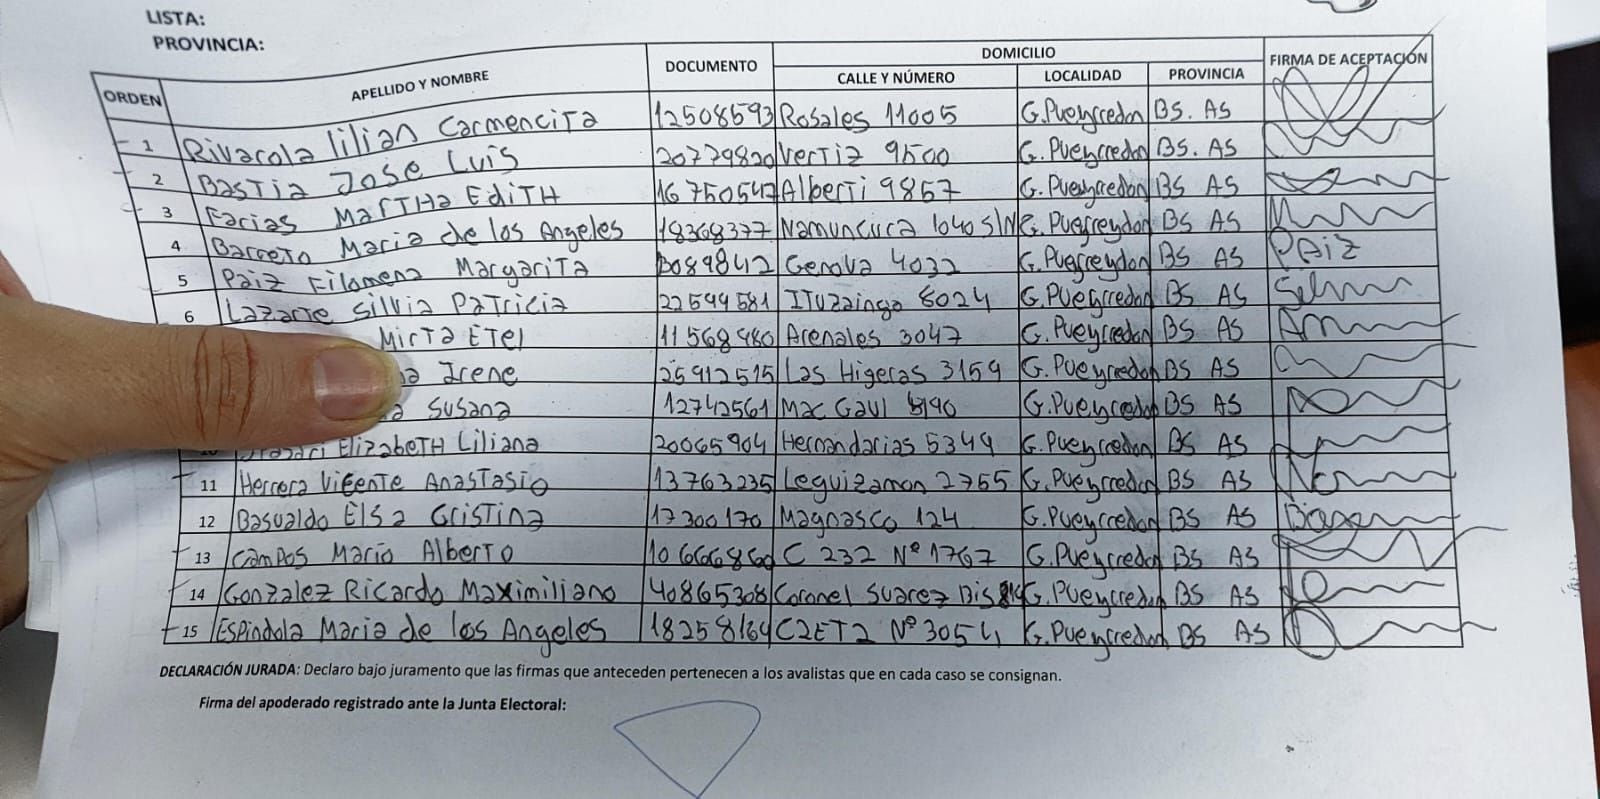 LISTA:
PROVINCIA:
ORDEN APELLIDO Y NOMBRE DOCUMENTO DOMICILIO FIRMA DE ACEPTACIÓN
CALLE Y NÚMERO LOCALIDAD PROVINCIA
1 Rivarola lilian Carmencita 12508593 Rosales 11005 G. Pueyrredon BS. AS
2 Bastia Jose Luis 20779820 Vertiz 9500 G. Pueyrredon BS. AS
3 Farias Martha Edith 16750547 Alberti 9857 G. Pueyrredon BS AS
4 Barreto Maria de los Angeles 18368377 Namuncura 1040 S/N G. Pueyrreydon BS AS
5 Paiz Filomena Margarita 3089842 Genova 4032 G. Pueyrreydon BS AS PAiz
6 Lazarte Silvia Patricia 22599581 Ituzaingo 8024 G. Pueyrredon BS AS
Mirta Etel 11568980 Arenales 3047 G. Pueyrredon BS AS
Irene 25912515 Las Higeras 3159 G. Pueyrredon BS AS
Susana 12742561 Mac Gaul G. Pueyrredon BS AS
10 Elizabeth Liliana 20065904 Hernandarias 5349 G. Pueyrredon BS AS
11 Herrera Vicente Anastasio 13763235 Leguizamon 2755 G. Pueyrredon BS AS
12 Basualdo Elsa Cristina 17300170 Magnasco 124 G. Pueyrredon BS AS
13 Campos Mario Alberto 10666860 C 232 Nº 1767 G. Pueyrredon BS AS
14 Gonzalez Ricardo Maximiliano 40865308 Coronel Suarez Bis G. Pueyrredon BS AS
15 Espindola Maria de los Angeles 18258164 Nº 3054 G. Pueyrredon BS AS
DECLARACIÓN JURADA: Declaro bajo juramento que las firmas que anteceden pertenecen a los avalistas que en cada caso se consignan.
Firma del apoderado registrado ante la Junta Electoral: